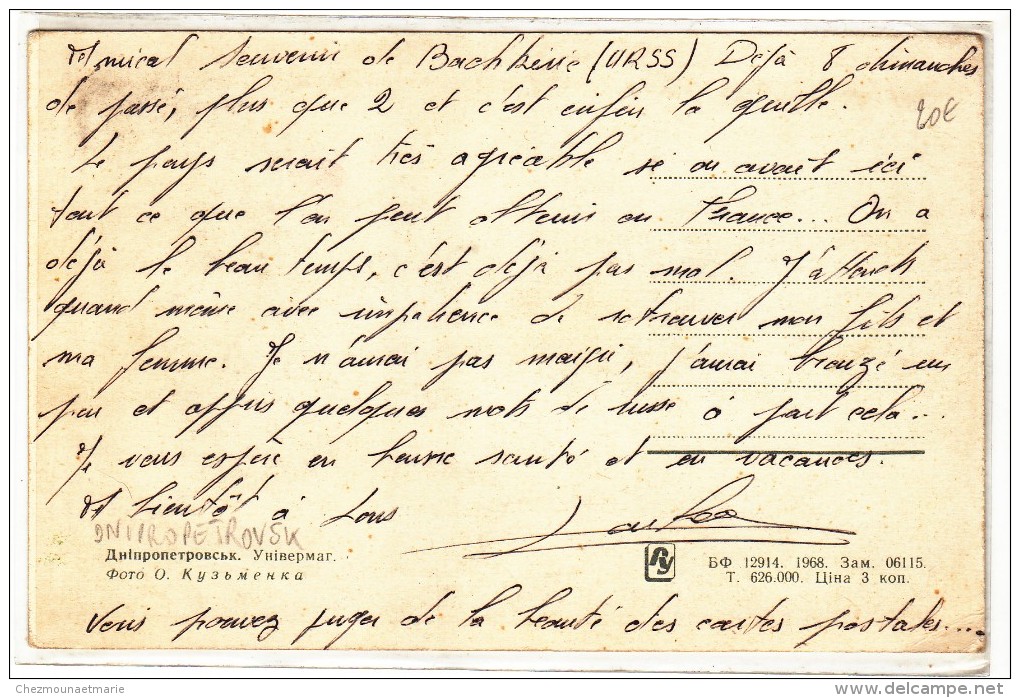 Amical souvenir de Bachkirie (URSS) Déjà 8 dimanches
de passé, plus que 2 et c'est enfin la quille.
20€
Le pays serait très agréable si on avait ici
tout ce que l'on peut obtenir en France... On a
déjà le beau temps, c'est déjà pas mal. J'attends
quand même avec impatience de retrouver mon fils et
ma femme. Je n'aurai pas maigri, j'aurai bronzé un
peu et appris quelques mots de russe à part cela...
Je vous espère en bonne santé et en vacances.
A bientôt à tous
DNIPROPETROVSK
Дніпропетровськ. Універмаг.
Фото О. Кузьменка
БФ 12914. 1968. Зам. 06115.
Т. 626.000. Ціна 3 коп.
Vous pouvez juger de la beauté des cartes postales....
Chezmounaetmarie
delcampe.net